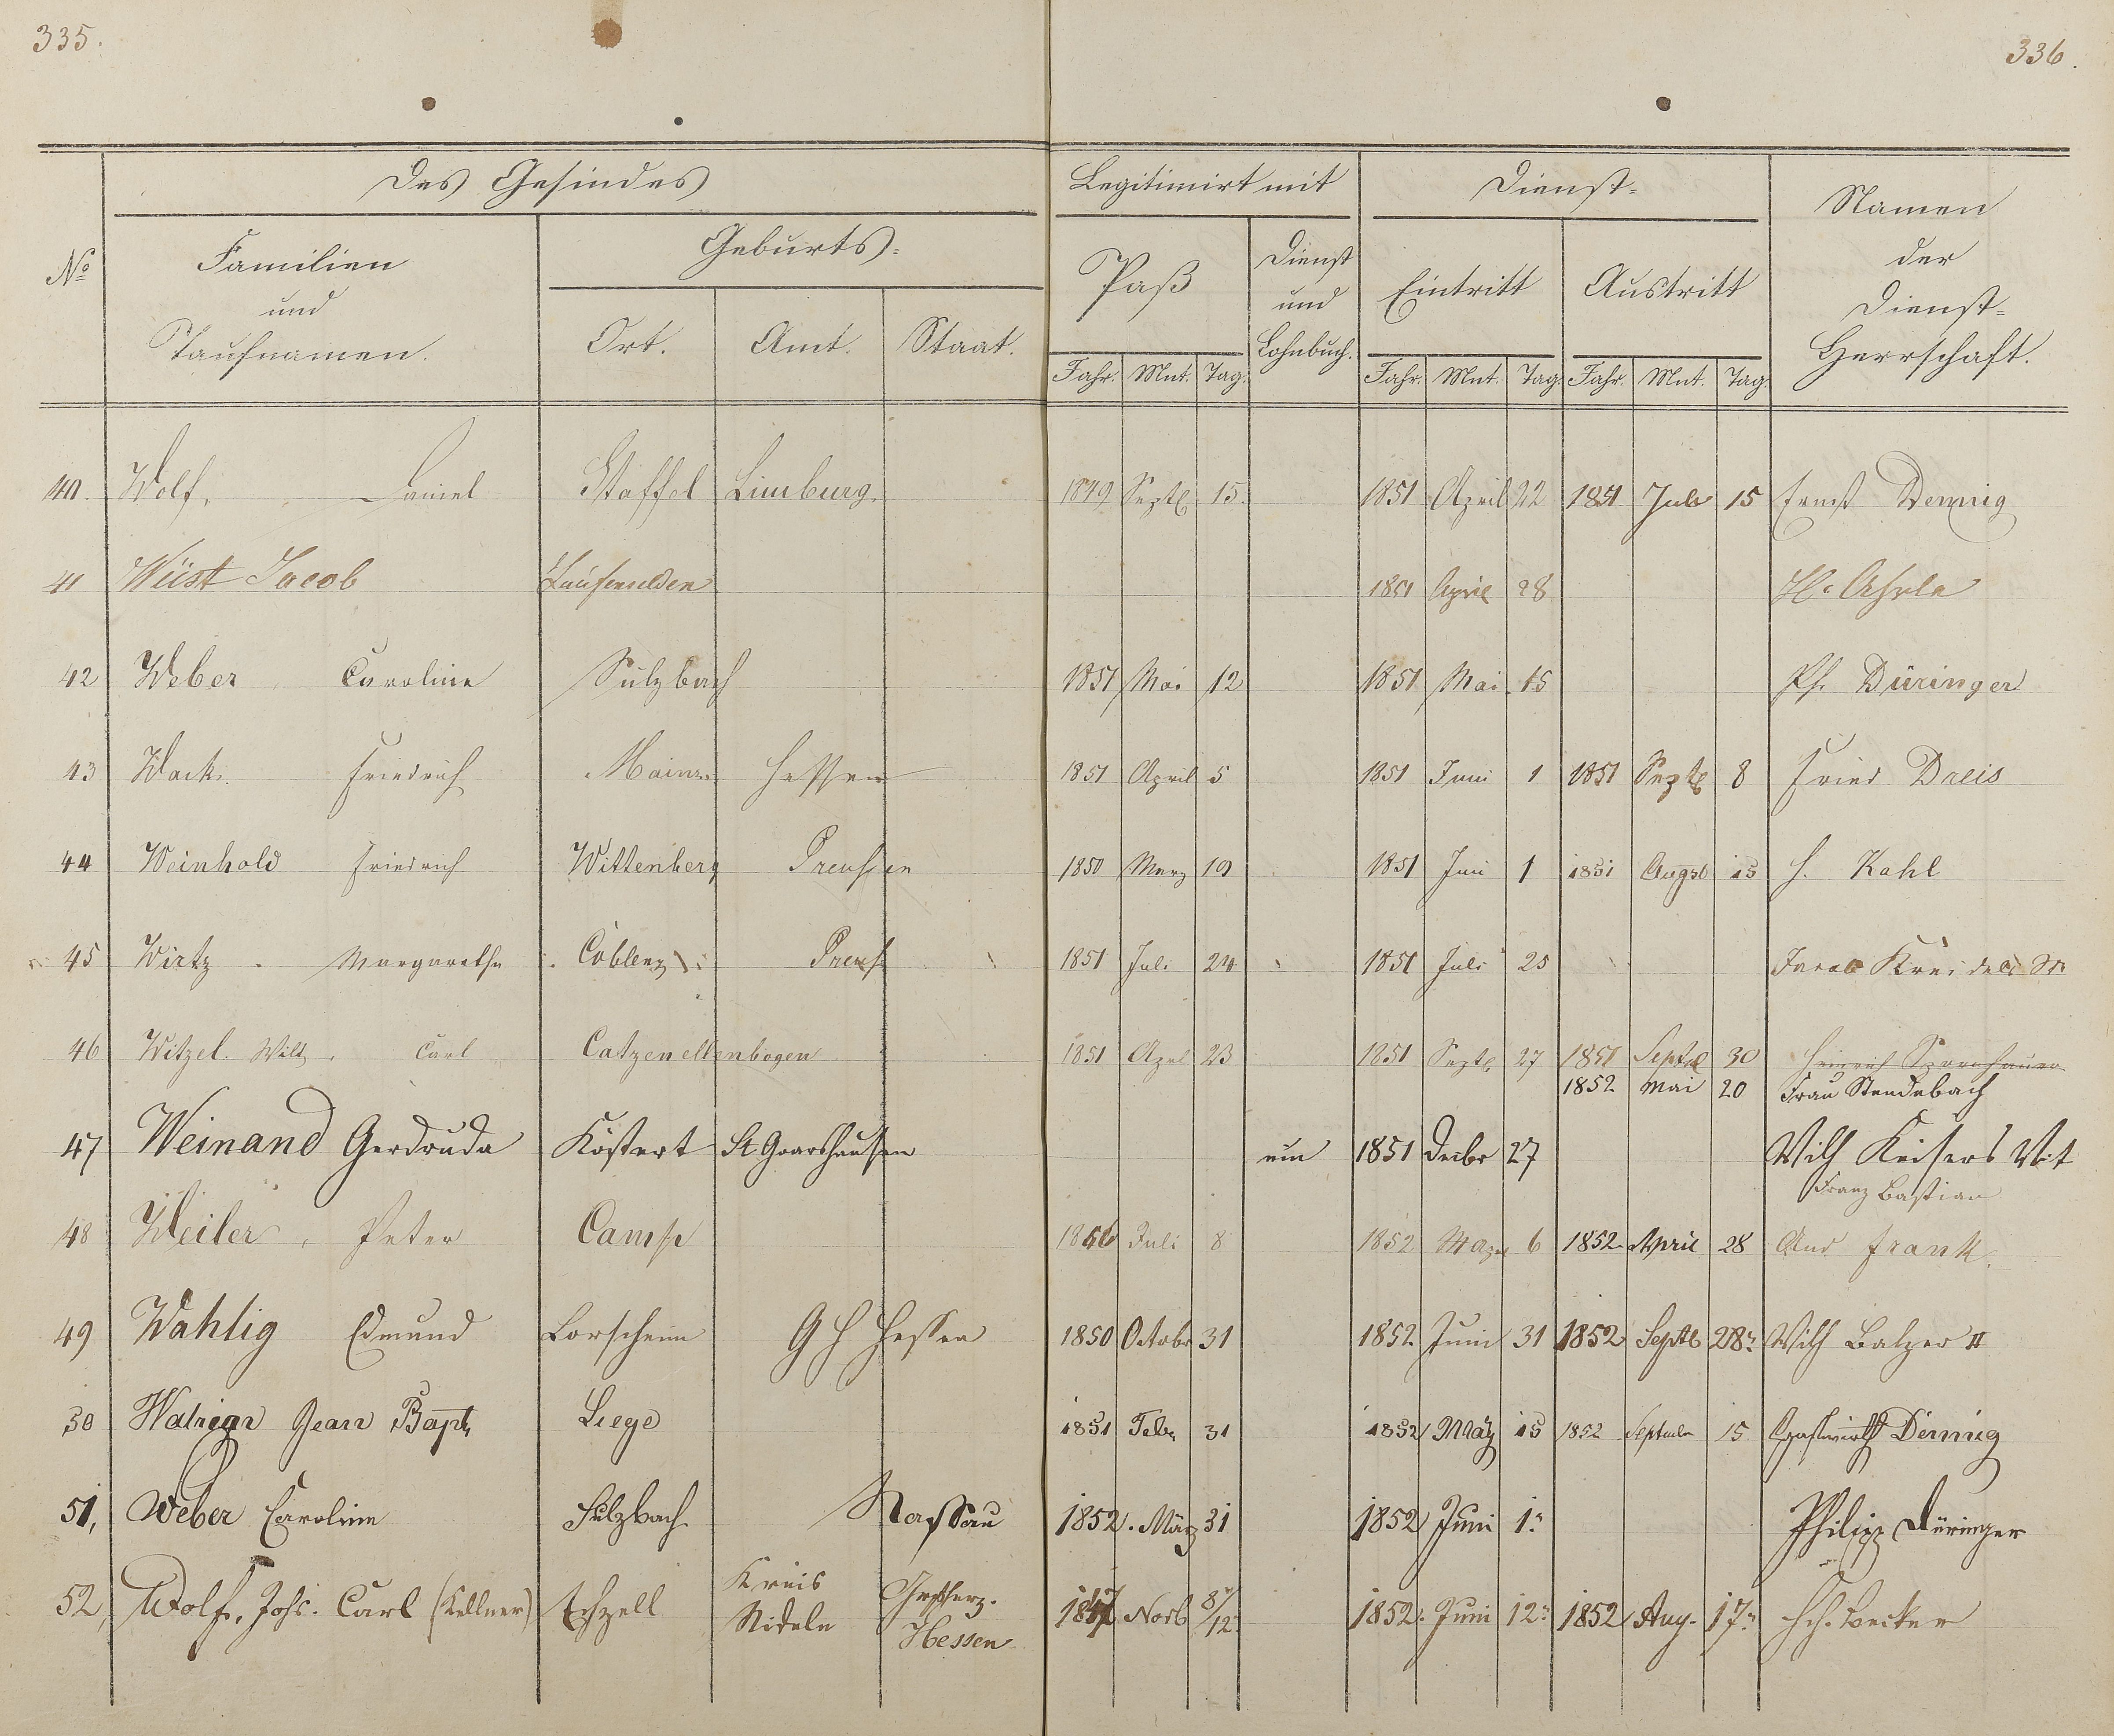 335.
336.
Des Gesindes
Legitimirt mit
Dienst-
Namen
der
Dienst-
Herrschaft.
No
Familien
und
Taufnamen.
Geburts-
Ort. Amt. Staat.
Paß
Dienst
und
Lohnbuch.
Eintritt
Austritt
Jahr. Mnt. Tag. Jahr. Mnt. Tag. Jahr. Mnt. Tag.
40. Wolf, Daniel Staffel Limburg. 1849 Septb 15. 1851 April 22 1851 Juli 15 Ernst Dennig
41 Wüst Jacob Laufenselden 1851 April 28
42 Weber Caroline Sulzbach 1851 Mai 12 1851 Mai 15 Ph. Düringer
43 Wack Friedrich Mainz Hessen 1851 April 5 1851 Juni 1 1851 Septb 8 Fried Dreis
44 Weinhold Friedrich Wittenberg Preussen 1850 Merz 19 1851 Juni 1 1851 Augst 15 H. Kahl
45 Wirtz Margaretha Coblenz Preuss 1851 Juli 24 1851 Juli 25 Jacob Kreidel
46 Witzel. Carl Catzenellenbogen 1851 Apr 23 1851 Septb 27 1851 Septb 30 Heinrich
1852 Mai 20 Frau Stendebach
47 Weinand Gerdruda Köstert St Goarshausen ein 1851 Decbr 27 Wilh Keisers Wit
Franz Bastian
48 Weiler, Peter Camp Juli 8 1852 März 6 1852 April 28 And Frank.
49 Wahlig Edmund Lorscheim G H Hessen 1850 Octobr 31 1852 Juni 31 1852 Septb 28 Wilh Balzer II
50 Jean Bapt. Liege 1851 Febr 31 1852 März 15 1852 Septembr 15 Gastwirth Dennig
51, Weber Caroline Sulzbach Nassau 1852. März 31 1852 Juni 1. Philipp Düringer
52, Wolf, Johs. Carl (Kellner) Echzell Kreis Nidda Grosherz. Hessen 1847 Novb 8/12 1852. Juni 12. 1852 Aug. 17. Hch. Becker